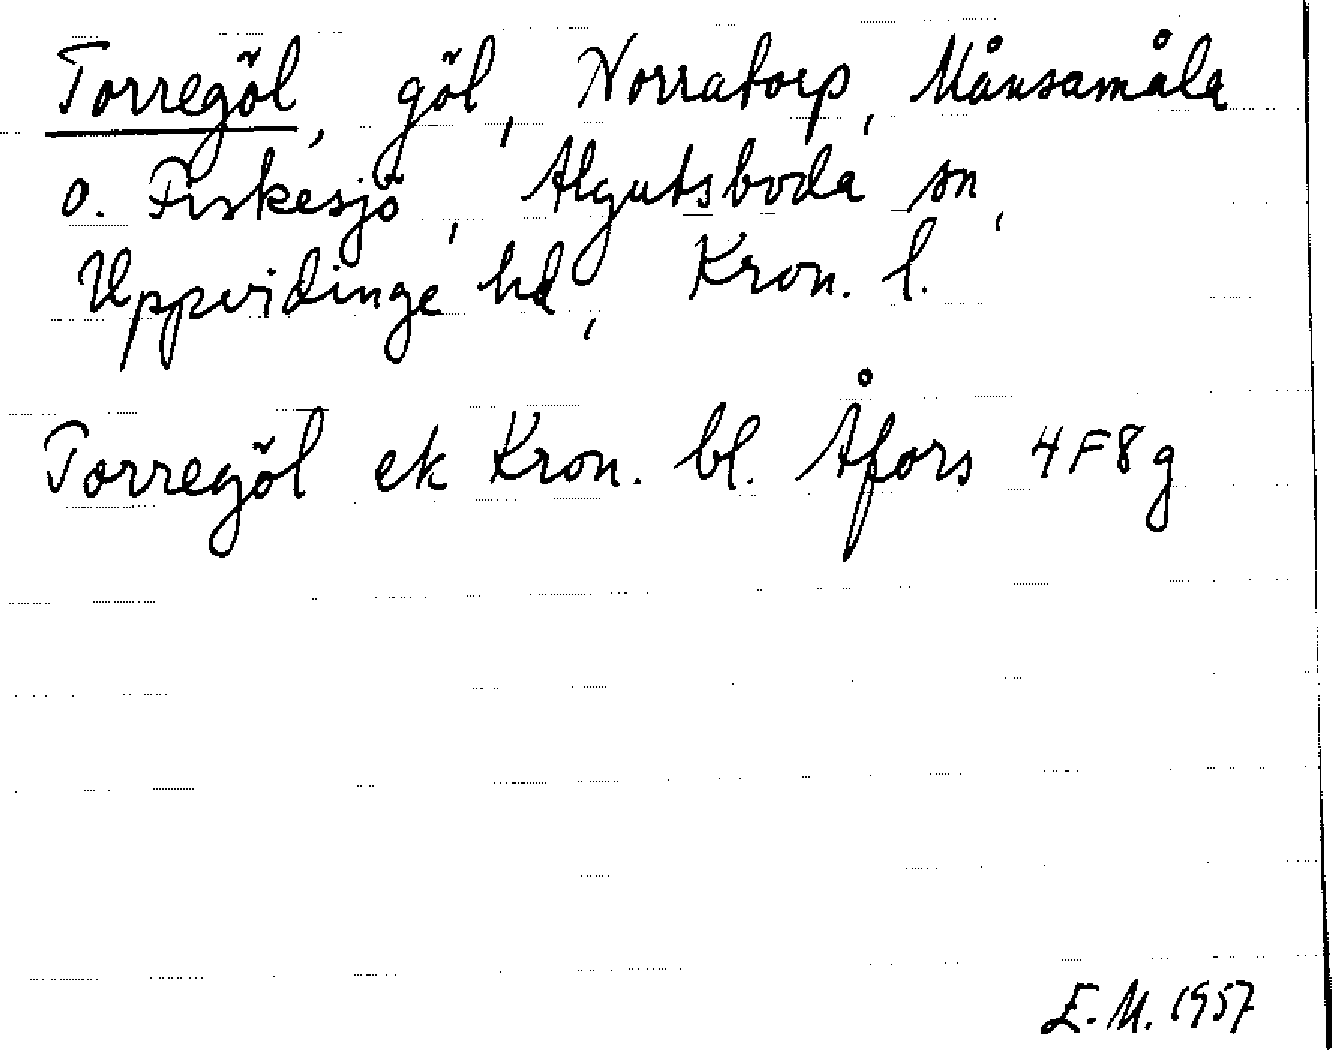 Torregöl, göl, Norratorp, Månsamåla
o. Fiskesjö, Algutsboda sn,
Uppvidinge hd, Kron. l.
Torregöl ek Kron. bl. Åfors 4F8g
E.M. 1957